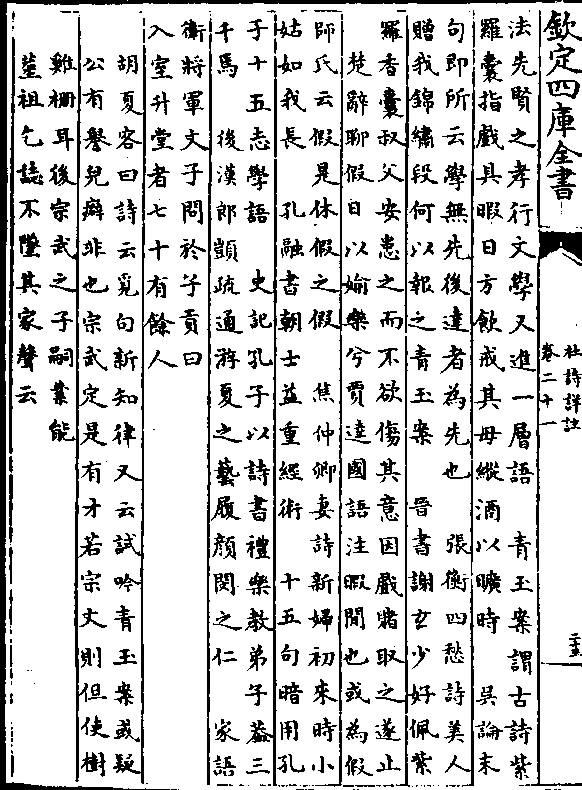 欽定四庫全書
杜詩詳註
卷二十一
法先賢之孝行文學又進一層語　青玉案謂古詩紫
羅囊指戲具暇日方飲戒其母縱酒以曠時　吳論末
句即所云學無先後達者為先也　張衡四愁詩美人
贈我錦繡段何以報之青玉案　晉書謝玄少好佩紫
羅香囊叔父安患之而不欲傷其意因戲賭取之遂止
楚辭聊假日以媮樂兮賈逵國語注暇閒也或為假
師氏云假是休假之假　焦仲卿妻詩新婦初來時小
姑如我長　孔融書朝士益重經術　十五句暗用孔
子十五志學語　史記孔子以詩書禮樂教弟子葢三
千焉　後漢郎顗疏通游夏之藝履顏閔之仁　家語
衛將軍文子問於子貢曰
入室升堂者七十有餘人
胡夏客曰詩云覓句新知律又云試吟青玉案或疑
公有譽兒癖非也宗武定是有才若宗文則但使樹
雞柵耳後宗武之子嗣業能
葬祖乞誌不墜其家聲云